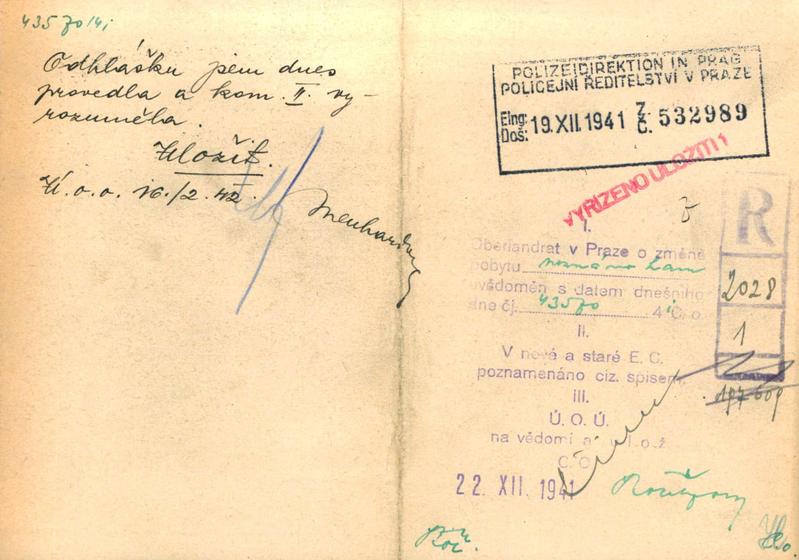 435 70/41
Odhlášku jsem dnes
provedla a kom. II. vy-
rozuměla.
Uložit.
Ú.o.o. 16./2. 42.
POLIZEIDIREKTION IN PRAG
POLICEJNÍ ŘEDITELSTVÍ V PRAZE
Eing:
Doš: 19. XII. 1941 Z/Č. 532989
VYŘÍZENO ULOŽITI
I.
Oberlandrat v Praze o změně
pobytu neznámo kam
uvědoměn s datem dnešního
dne čj. 43570 41 C. o.
II.
V nové a staré E. C.
poznamenáno ciz. spisem.
III.
Ú. O. Ú.
na vědomí a u l. o ž.
C. O.
22. XII. 1941
R
2028
1
197 609